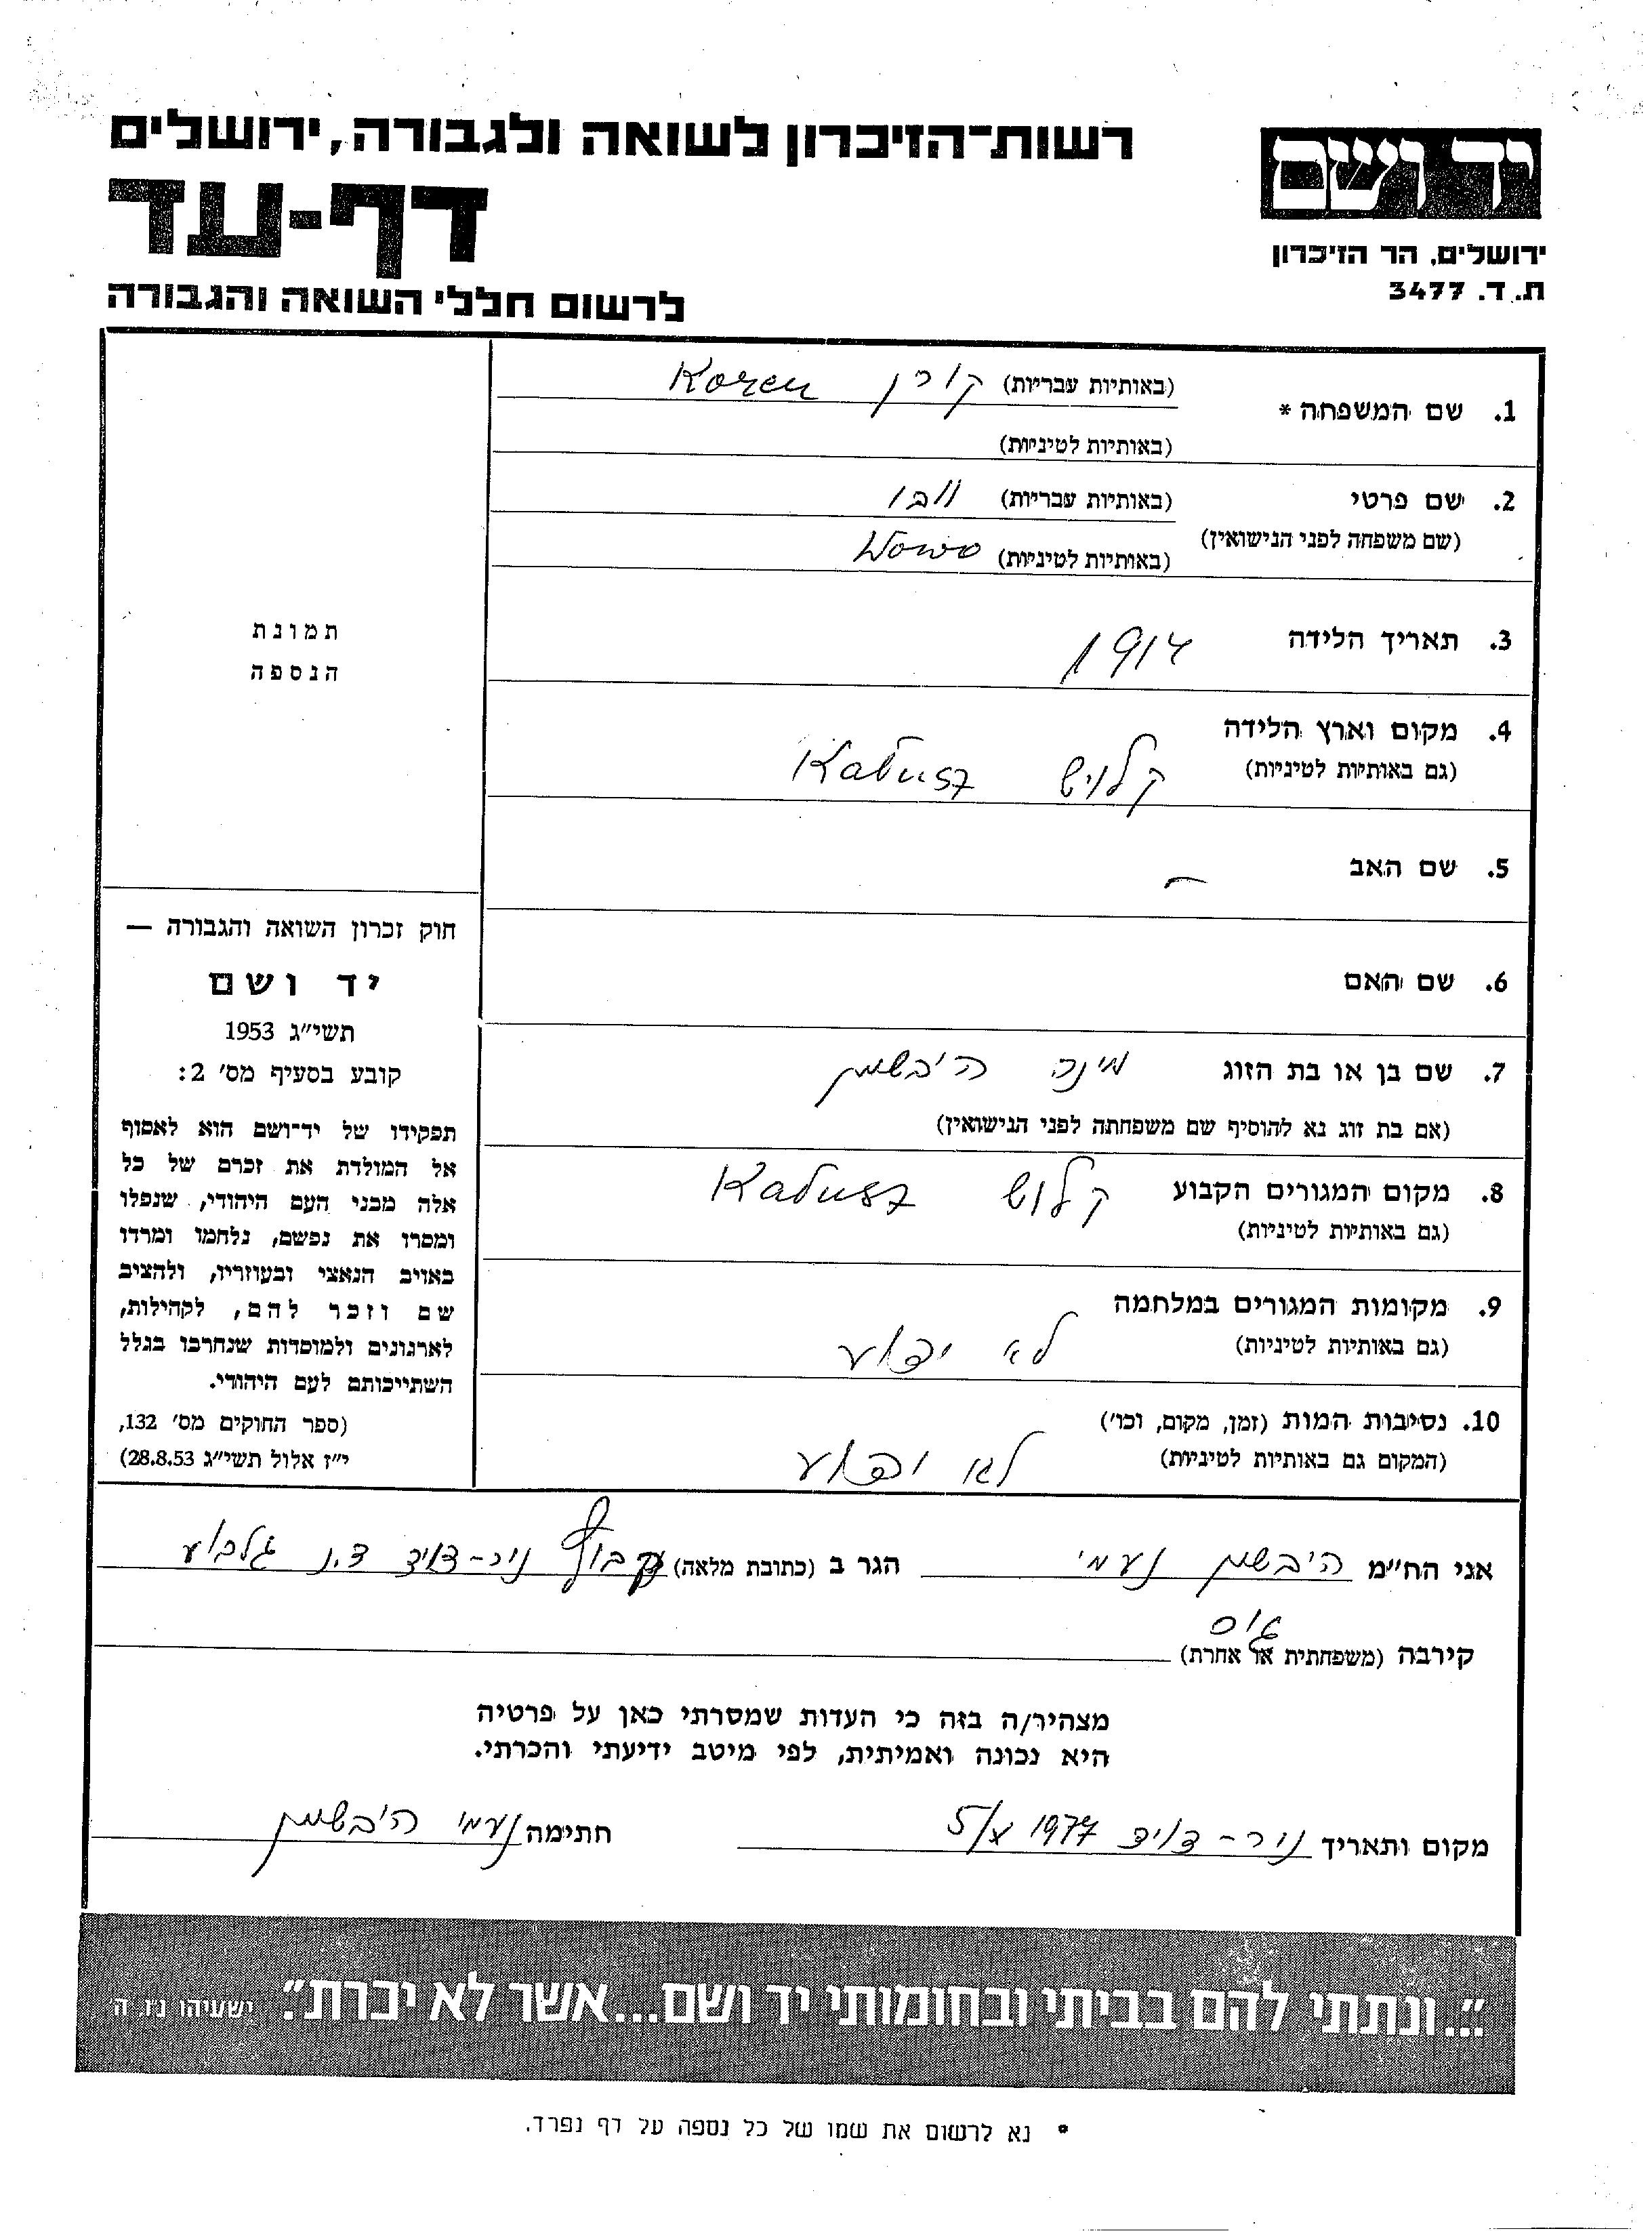 רשות־הזיכרון לשואה ולגבורה, ירושלים
דף-עד
לרשום חללי השואה והגבורה
יד ושם
ירושלים, הר הזיכרון
ת. ד. 3477
1. שם המשפחה * (באותיות עבריות) קורן Koren
(באותיות לטיניות)
2. שם פרטי (באותיות עבריות) וובו
(שם משפחה לפני הנישואין) (באותיות לטיניות) Wowo
3. תאריך הלידה 1914
4. מקום וארץ הלידה
(גם באותיות לטיניות) קלויש Kałusz
5. שם האב –
6. שם האם
7. שם בן או בת הזוג מינה היבשמן
(אם בת זוג נא להוסיף שם משפחתה לפני הנישואין)
8. מקום המגורים הקבוע קלוש Kałusz
(גם באותיות לטיניות)
9. מקומות המגורים במלחמה
(גם באותיות לטיניות) לא ידוע
10. נסיבות המות (זמן, מקום, וכו')
(המקום גם באותיות לטיניות) לא ידוע
תמונת
הנספה
חוק זכרון השואה והגבורה —
יד ושם
תשי"ג 1953
קובע בסעיף מס' 2:
תפקידו של יד־ושם הוא לאסוף
אל המולדת את זכרם של כל
אלה מבני העם היהודי, שנפלו
ומסרו את נפשם, נלחמו ומרדו
באויב הנאצי ובעוזריו, ולהציב
שם וזכר להם, לקהילות,
לארגונים ולמוסדות שנחרבו בגלל
השתייכותם לעם היהודי.
(ספר החוקים מס' 132,
י"ז אלול תשי"ג 28.8.53)
אני הח"מ היבשמן נעמי הגר ב (כתובת מלאה) קבוץ ניר-דויד ד.נ גלבוע
גיס
קירבה (משפחתית או אחרת)
מצהיר/ה בזה כי העדות שמסרתי כאן על פרטיה
היא נכונה ואמיתית, לפי מיטב ידיעתי והכרתי.
מקום ותאריך ניר-דויד 5/X 1977 חתימה נעמי היבשמן
"...ונתתי להם בביתי ובחומותי יד ושם...אשר לא יכרת". ישעיהו נ"ו ה
* נא לרשום את שמו של כל נספה על דף נפרד.